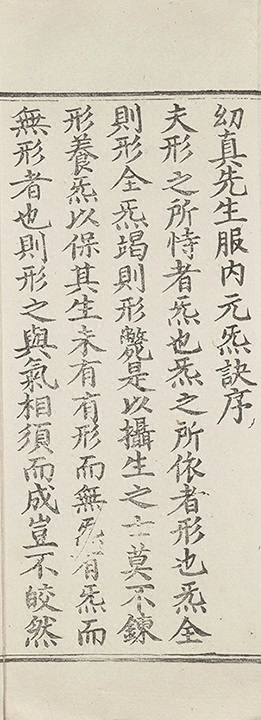 幼真先生服内元炁訣序
夫形之所恃者炁也炁之所依者形也炁全
則形全炁竭則形斃是以攝生之士莫不鍊
形養炁以保其生未有有形而無炁有炁而
無形者也則形之與氣相須而成豈不皎然